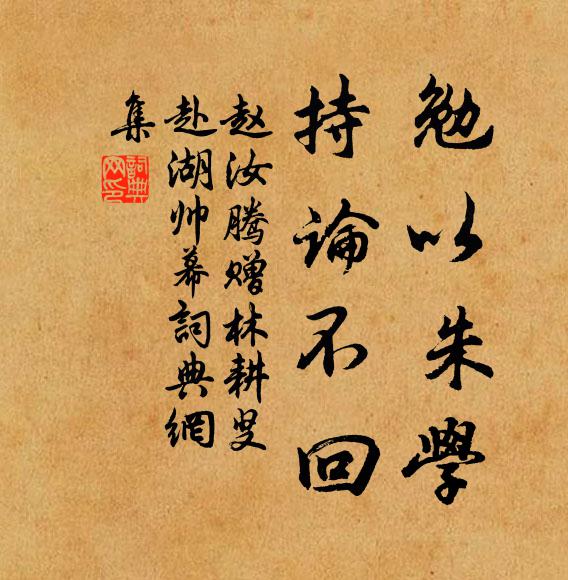 勉以朱學
持論不回
赵汝腾赠林耕叟
赴湖帅幕詞典網
集
詞典网印